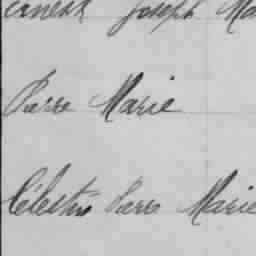 Ernest Joseph Ma
Pierre Marie
Célestin Pierre Marie